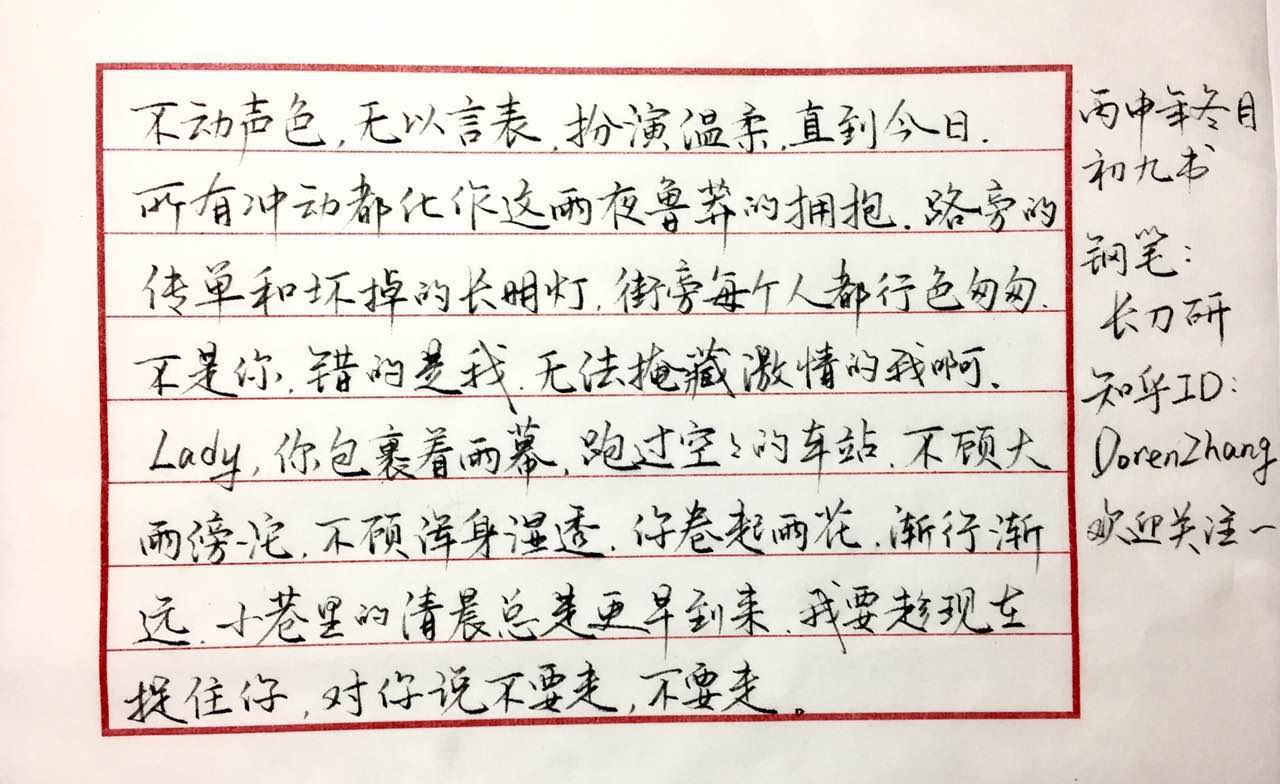 不动声色,无以言表,扮演温柔,直到今日.
所有冲动都化作这雨夜鲁莽的拥抱.路旁的
传单和坏掉的长明灯,街旁每个人都行色匆匆.
不是你,错的是我.无法掩藏激情的我啊.
Lady,你包裹着雨幕,跑过空々的车站.不顾大
雨滂沱,不顾浑身湿透.你卷起雨花.渐行渐
远.小巷里的清晨总是更早到来.我要趁现在
捉住你,对你说不要走,不要走。
丙申年冬月
初九书
钢笔:
长刀研
知乎ID:
DorenZhang
欢迎关注~